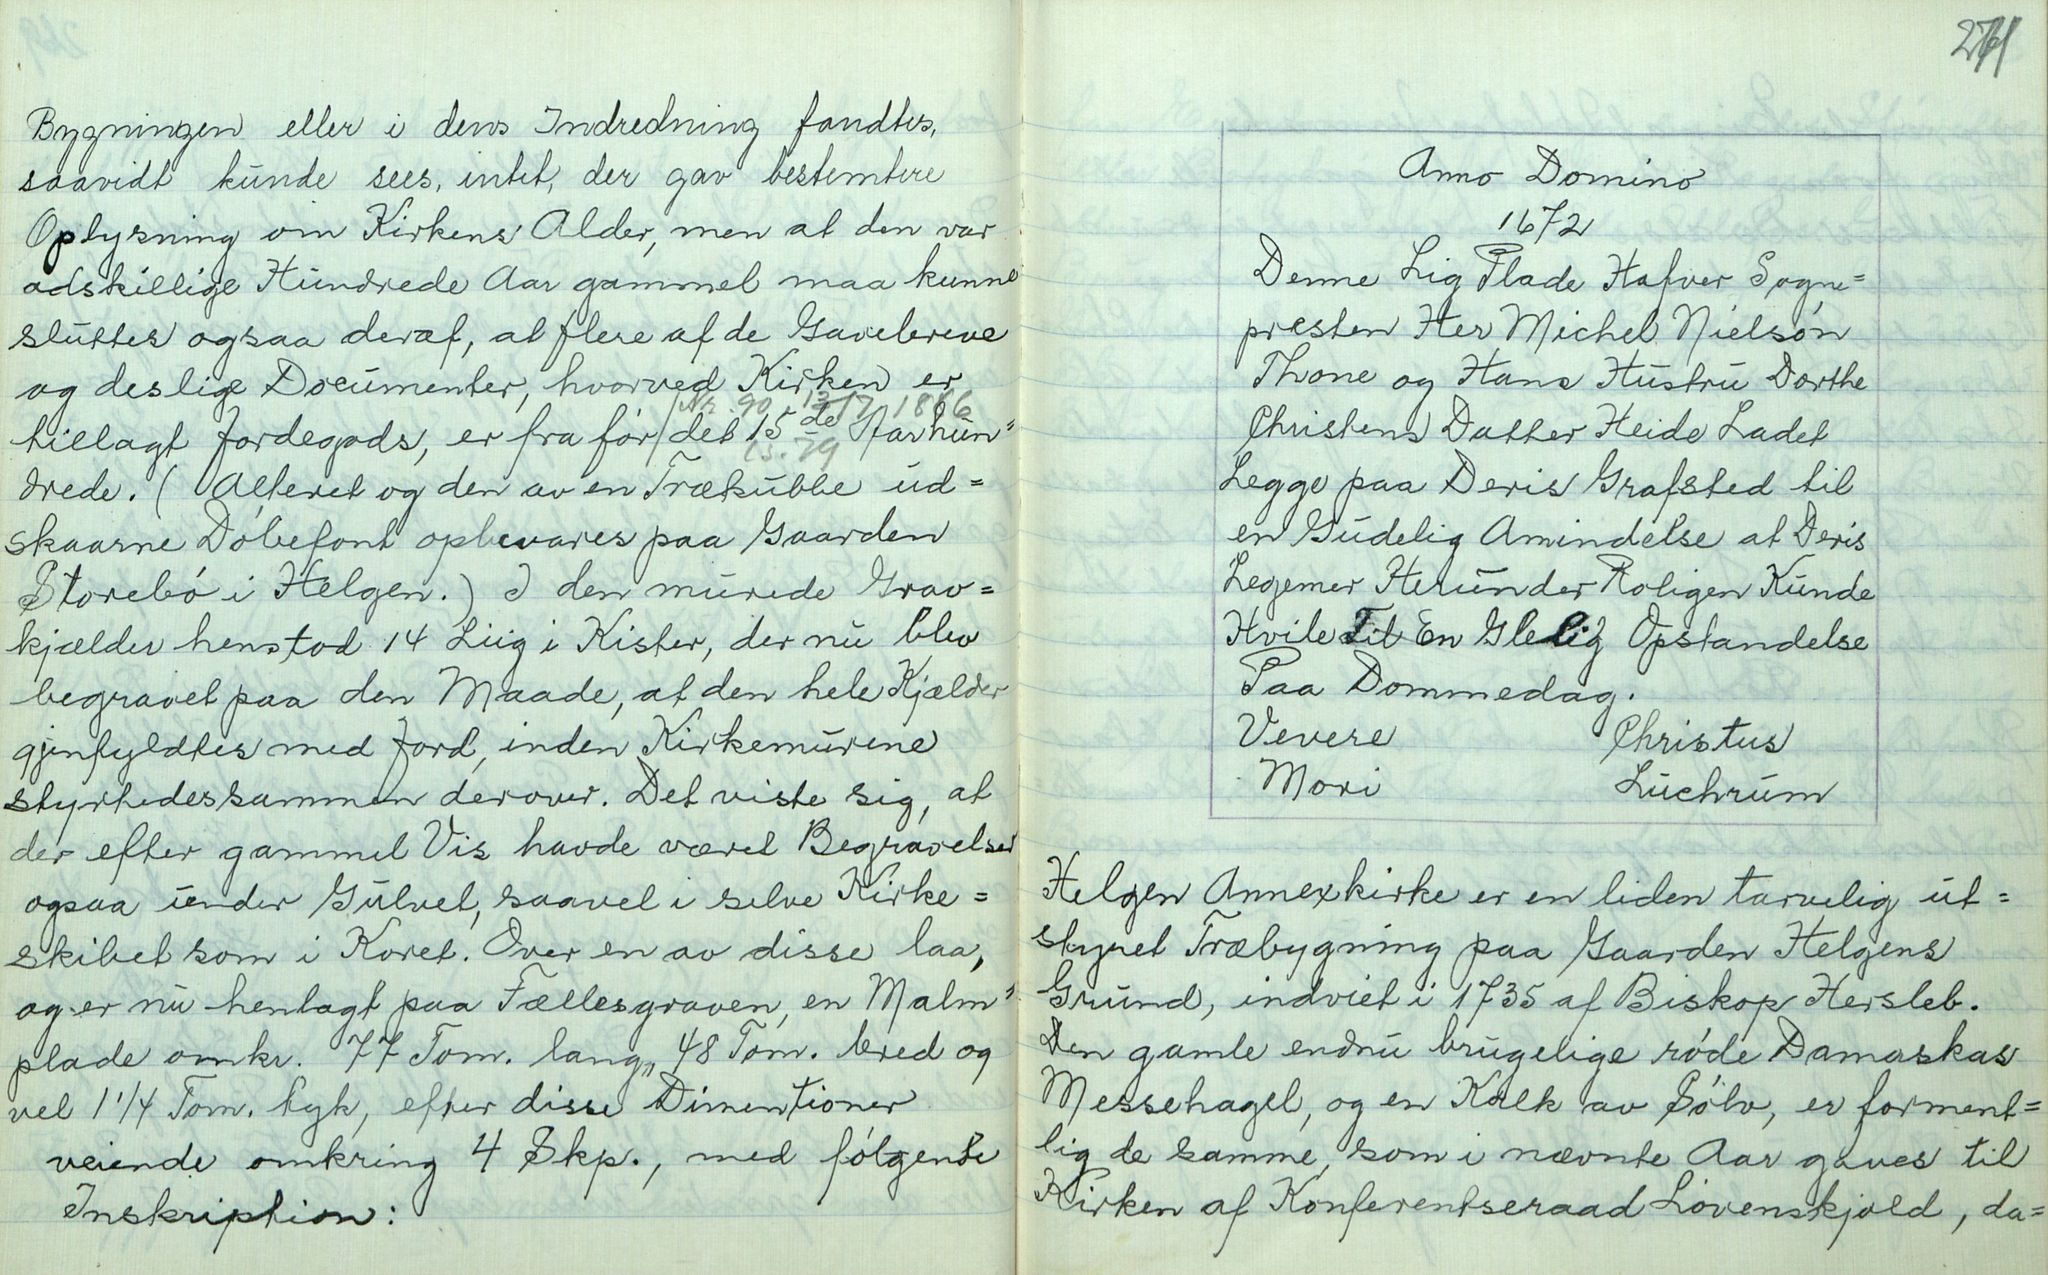 Bygningen eller i dens Indredning fandtes,
saavidt kunde sees, intet, der gav bestemtere
Oplysning om Kirkens Alder, men at den var
adskillige Hundrede Aar gammel maa kunne
sluttes ogsaa deraf, at flere af de Gavebreve
og deslige Documenter, hvorved Kirken er
tillagt Jordegods, er fra før det 15de Aarhun=
drede. (Alteret og den av en Trækubbe ud=
skaarne Døbefont opbevares paa Gaarden
Storebø i Helgen.) I den murede Grav=
kjælder henstod 14 Liig i Kister, der nu blev
begravet paa den Maade, at den hele Kjælder
gjenfyldtes med Jord, inden Kirkemurene
styrtedes sammen derover. Det viste sig, at
der efter gammel Vis havde været Begravelser
ogsaa under Gulvet, saavel i selve Kirke=
skibet som i Koret. Over en av disse laa,
og er nu henlagt paa Fællesgraven, en Malm=
plade omkr. 77 Tom. lang, 48 Tom. bred og
vel 1 1/4 Tom. tyk, efter disse Dimentioner
veiende omkring 4 Skp., med følgende
Inskription:
Anno Domino
1672
Denne Lig Plade Hafver Sogne=
presten Her Michel Nielsøn
Thone og Hans Hustru Dorthe
Christens Datter Heide Ladet
Legge paa Deris Grafsted til
en Gudelig Amindelse at Deris
Legemer Herunder Roligen Kunde
Hvile Til En Glelig Opstandelse
Paa Dommedag.
Vevere Christus
Mori Luchrum
Helgen Annexkirke er en liden tarvelig ut=
styret Træbygning paa Gaarden Helgens
Grund, indviet i 1735 af Biskop Hersleb.
Den gamle endnu brugelige røde Damaskas
Messehagel, og en Kalk av Sølv, er forment=
lig de samme, som i nævnte Aar gaves til
Kirken af Konferentseraad Løvenskjold, da=